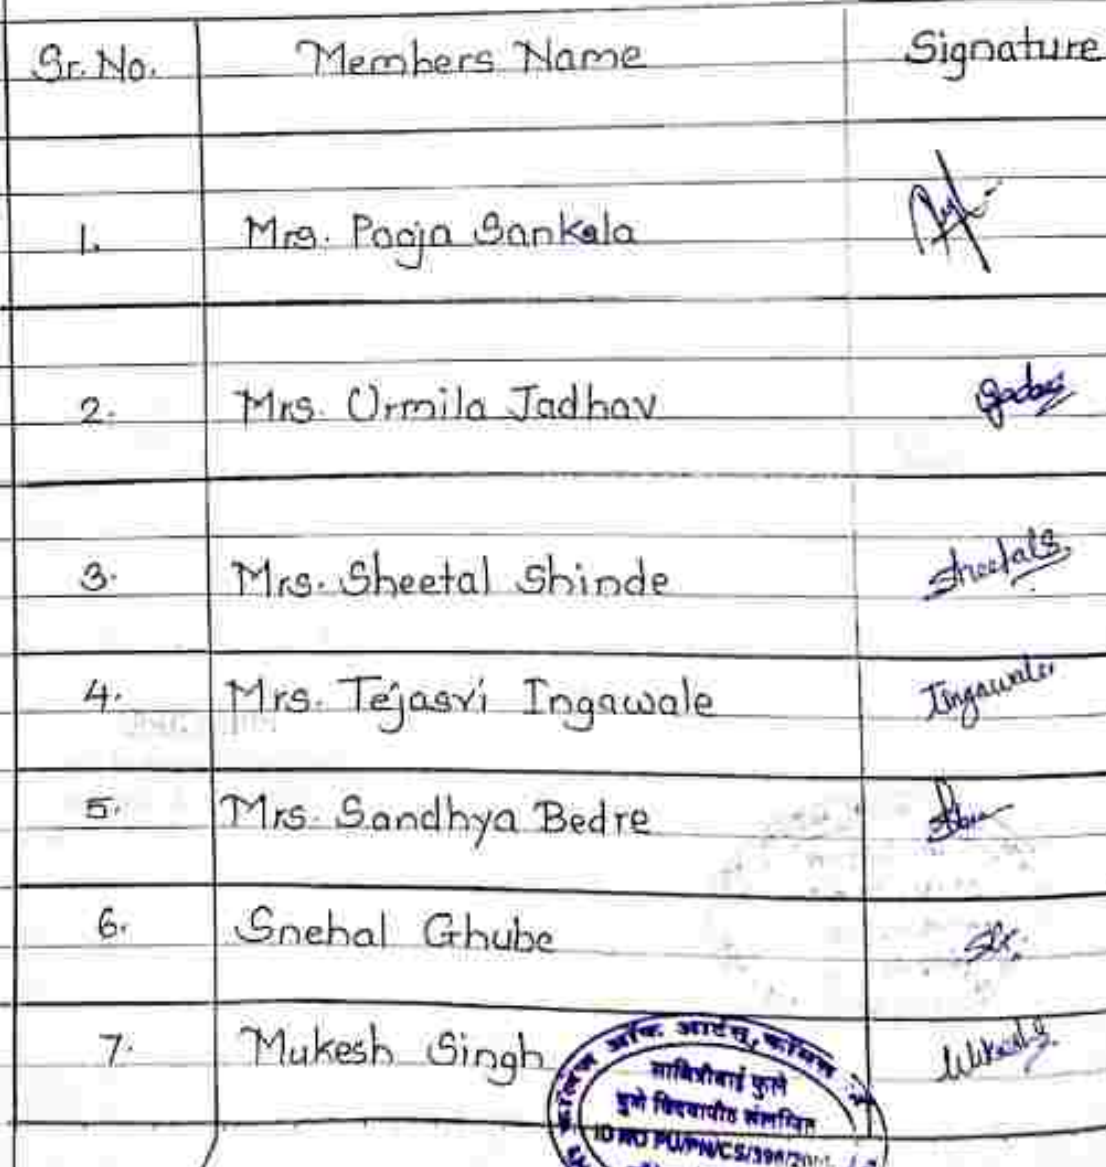 Sr. No. Members Name Signature
1. Mrs. Pooja Sankala
2. Mrs. Urmila Jadhav
3. Mrs. Sheetal Shinde Sheetals
4. Mrs. Tejasvi Ingawale Ingawale
5. Mrs. Sandhya Bedre
6. Snehal Ghube
7. Mukesh Singh
कॉलेज ऑफ आर्टस्, कॉमर्स
सावित्रीबाई फुले
पुणे विद्यापीठ संलग्नित
ID NO PU/PN/CS/